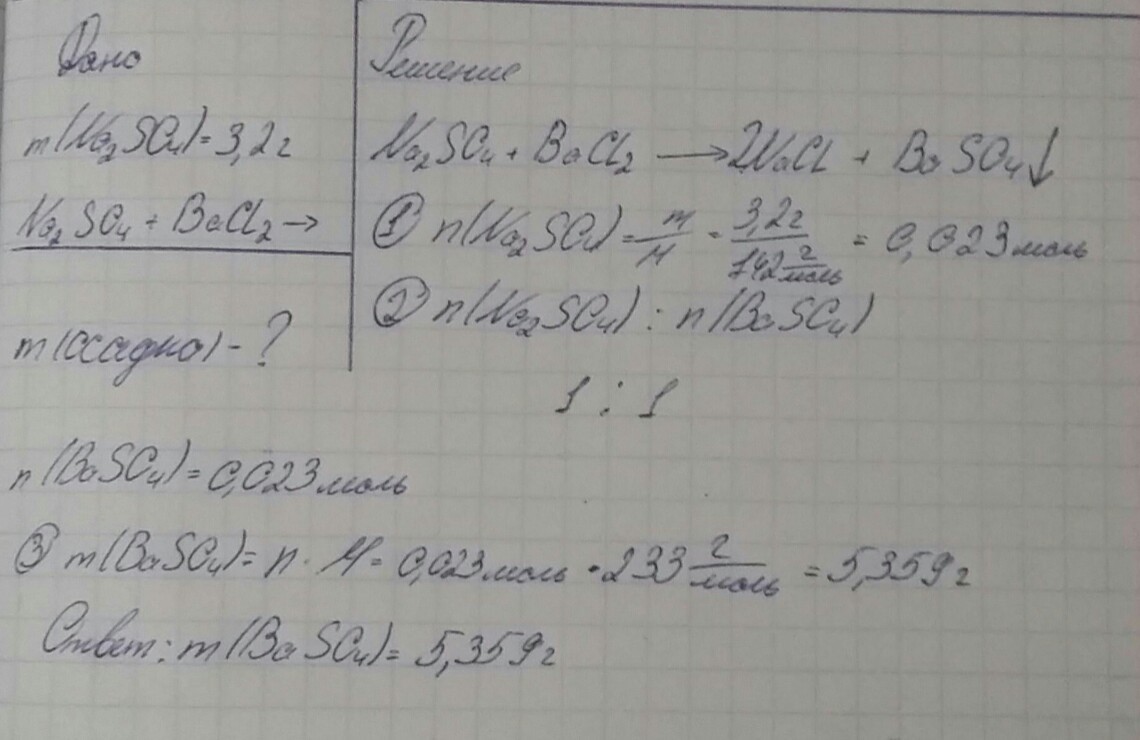 Дано
m(Na₂SO₄)=3,2г
Na₂SO₄ + BaCl₂ →
m(осадка) - ?
Решение
Na₂SO₄ + BaCl₂ → 2NaCl + BaSO₄↓
① n(Na₂SO₄) = m/M = 3,2г/142 г/моль = 0,023 моль
② n(Na₂SO₄) : n(BaSO₄)
1 : 1
n(BaSO₄) = 0,023 моль
③ m(BaSO₄) = n · M = 0,023 моль · 233 г/моль = 5,359 г
Ответ: m(BaSO₄) = 5,359 г